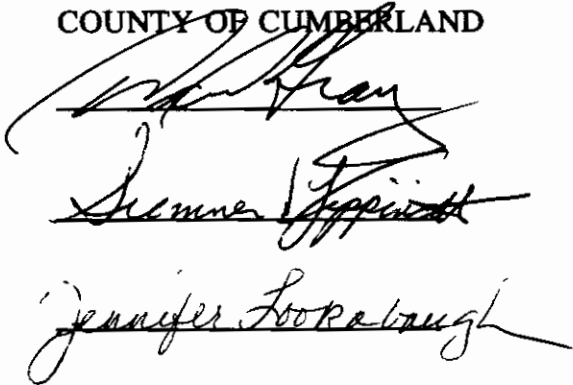 COUNTY OF CUMBERLAND
Gray
Sumner Lippincott
Jennifer Lookabaugh